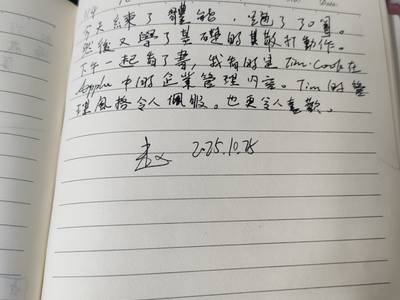 今天練了體能，跑了30圈。
然後又學了基礎的散打動作。
下午一起看了書，我看的是Tim·Cook在
Apple中的企業管理內容。Tim的管
理風格令人佩服。也更令人喜歡。
2025.10.25